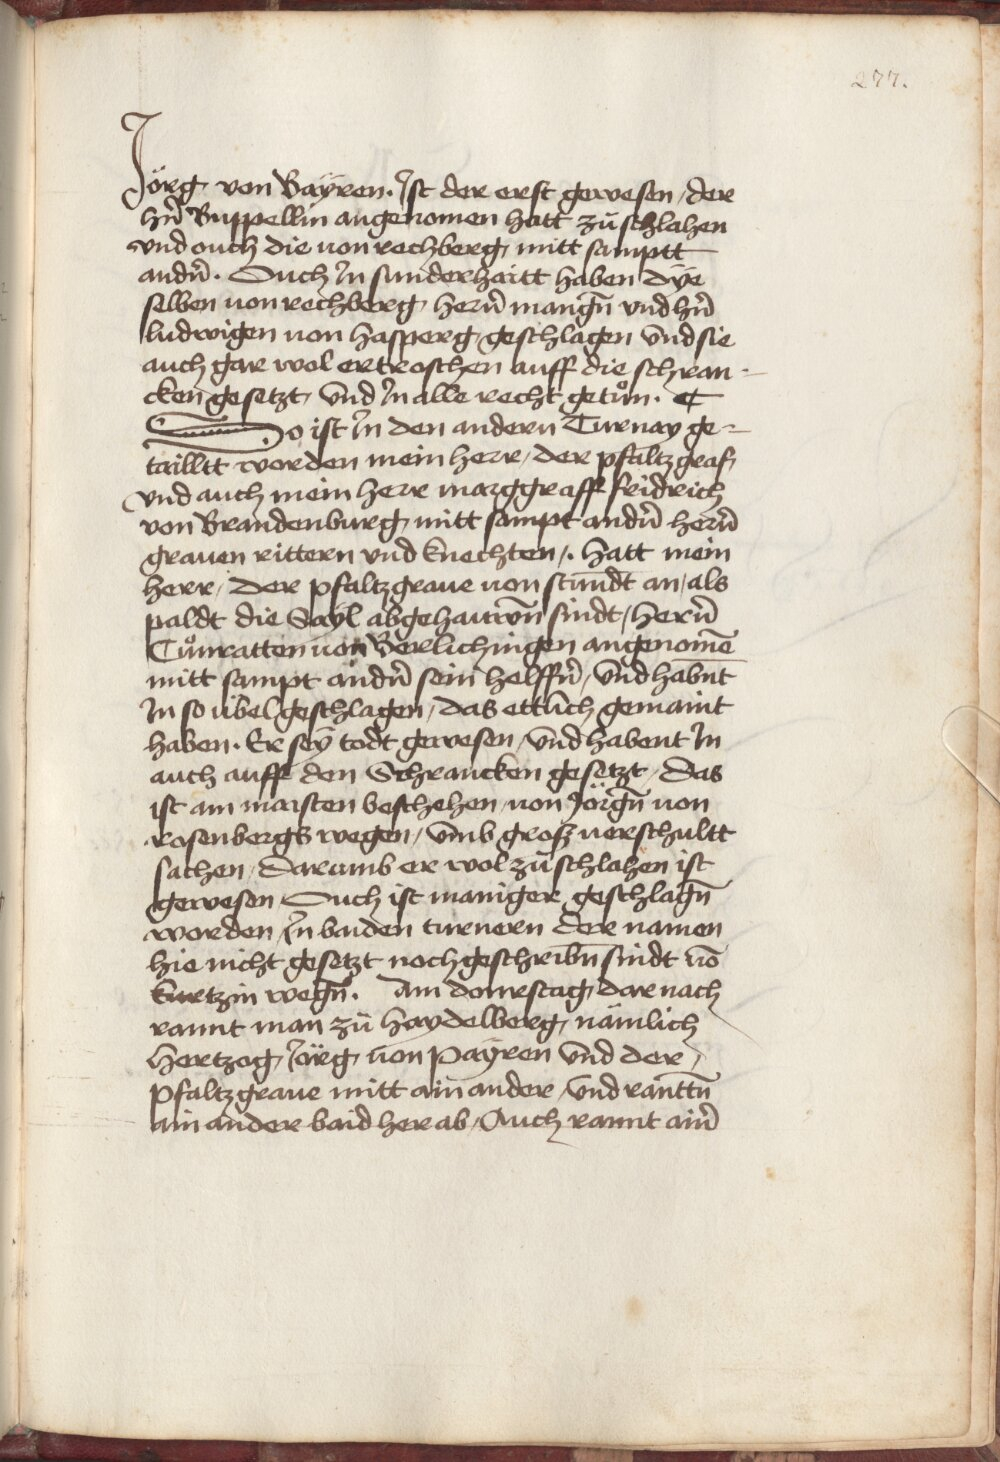 277.
Jörg von Bayren. Ist der erst gewesen / der
hn̄ Buppellin angenomen hatt zů schlahen
vnd ouch die von rechberg mitt samptt
andn̄. Ouch In sunderhaitt haben dye
selben von rechberg hern̄ mangn̄ vnd hn̄
ludwigen von hasperg geschlagen vnd sie
auch gar wol ertroschen auff die schran-
cken gesetzt, vnd In alle recht getůn.
So ist In den andern Turnay ge-
tailltt worden mein herr / der pfaltzgraf,
vnd auch mein herr marggraff fridrich
von Brandenburg mitt sampt andn̄ hern̄
grauen rittern vnd knechten /. hatt mein
herr / der pfaltzgraue von stundt an / als
paldt die Sayl abgehauwn̄ sindt / hern̄
Cůnratten von Berlichingen angenomē
mitt sampt andn̄ sein helffn̄ / vnd habnt
In so übel geschlagen / das ettlich gemaint
haben. Er sey todt gewesen / vnd habent In
auch auff den Schrancken gesetzt / das
ist am maisten beschehen / von Jörgn̄ von
rosenbergs wegen / vmb groß verschultt
sachen / darumb er wol zů schlahen ist
gewesen / Ouch ist maniger geschlagn̄
worden / In baiden turnern der namen
hie nicht gesetzt noch geschribn̄ sindt vō
kurtzin wegn̄. Am donrstag dar nach
rannt man zů haydelberg, nämlich
hertzog Jörg von payren vnd der /
pfaltzgraue mitt ain ander / vnd ranttn̄
ain ander baid her ab / Auch rannt ain̄